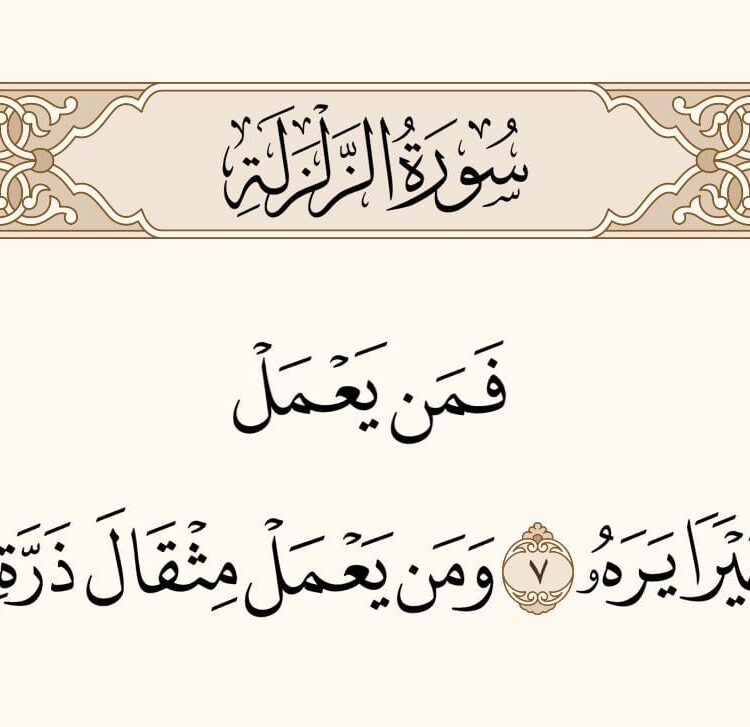 سُورَةُ الزَّلْزَلَةِ
فَمَن يَعْمَلْ
يْرًا يَرَهُۥ ٧ وَمَن يَعْمَلْ مِثْقَالَ ذَرَّةٍ